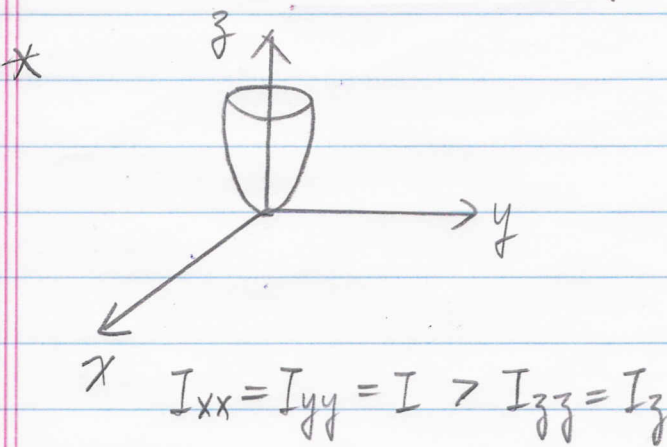 z
*
y
x
I_xx = I_yy = I > I_zz = I_z